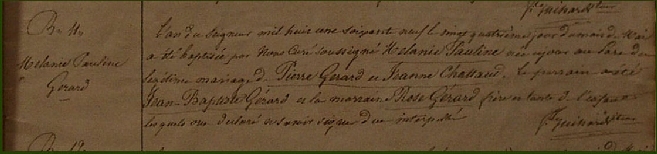 B. 11.
Mélanie Pauline
Gérard
L'an du Seigneur mil huit cent soixante neuf le vingt quatrième jour du mois de Mai
a été baptisée par Nous Curé soussigné Mélanie Pauline née ce jour au Parc du
légitime mariage de Pierre Gérard et Jeanne Chettaud. Le parrain a été
Jean-Baptiste Gérard et la marraine Rose Gérard, frère et tante de l'enfant
lesquels ont déclaré ne savoir signer interpellés